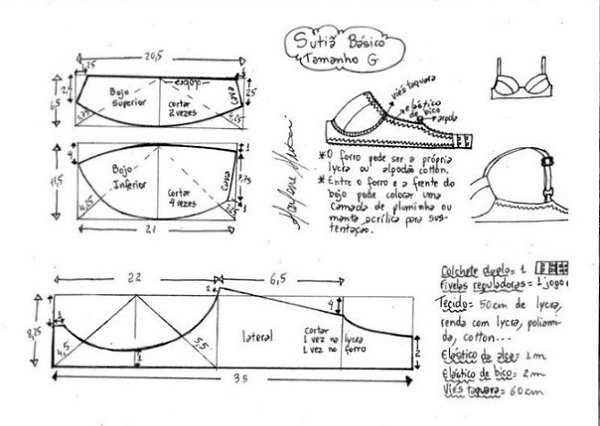 Sutiã Básico
Tamanho G
20,5
1,25
2,5
6,5
Bojo
Superior
dobra
cortar
2 vezes
Cava
25
1
Bojo
Inferior
Cortar
4 vezes
Cava
4
1
7,75
1
4,25
21
viés taquara
elástico
de bico
* O forro pode ser a própria
lycra ou algodão cotton.
* Entre o forro e a frente do
bojo pode colocar uma
camada de pluminha ou
manta acrílica para sus-
tentação.
22
6,5
2
8,25
1
4,5
1
5,5
lateral
Cortar
1 vez no lycra
1 vez no forro
4
2
35
Colchete duplo = 1
Fivelas reguladoras = 1 jogo
Tecido = 50 cm de lycra,
renda com lycra, poliami-
da, cotton...
Elástico de alça = 1 m
Elástico de bico = 2 m
Viés taquara = 60 cm